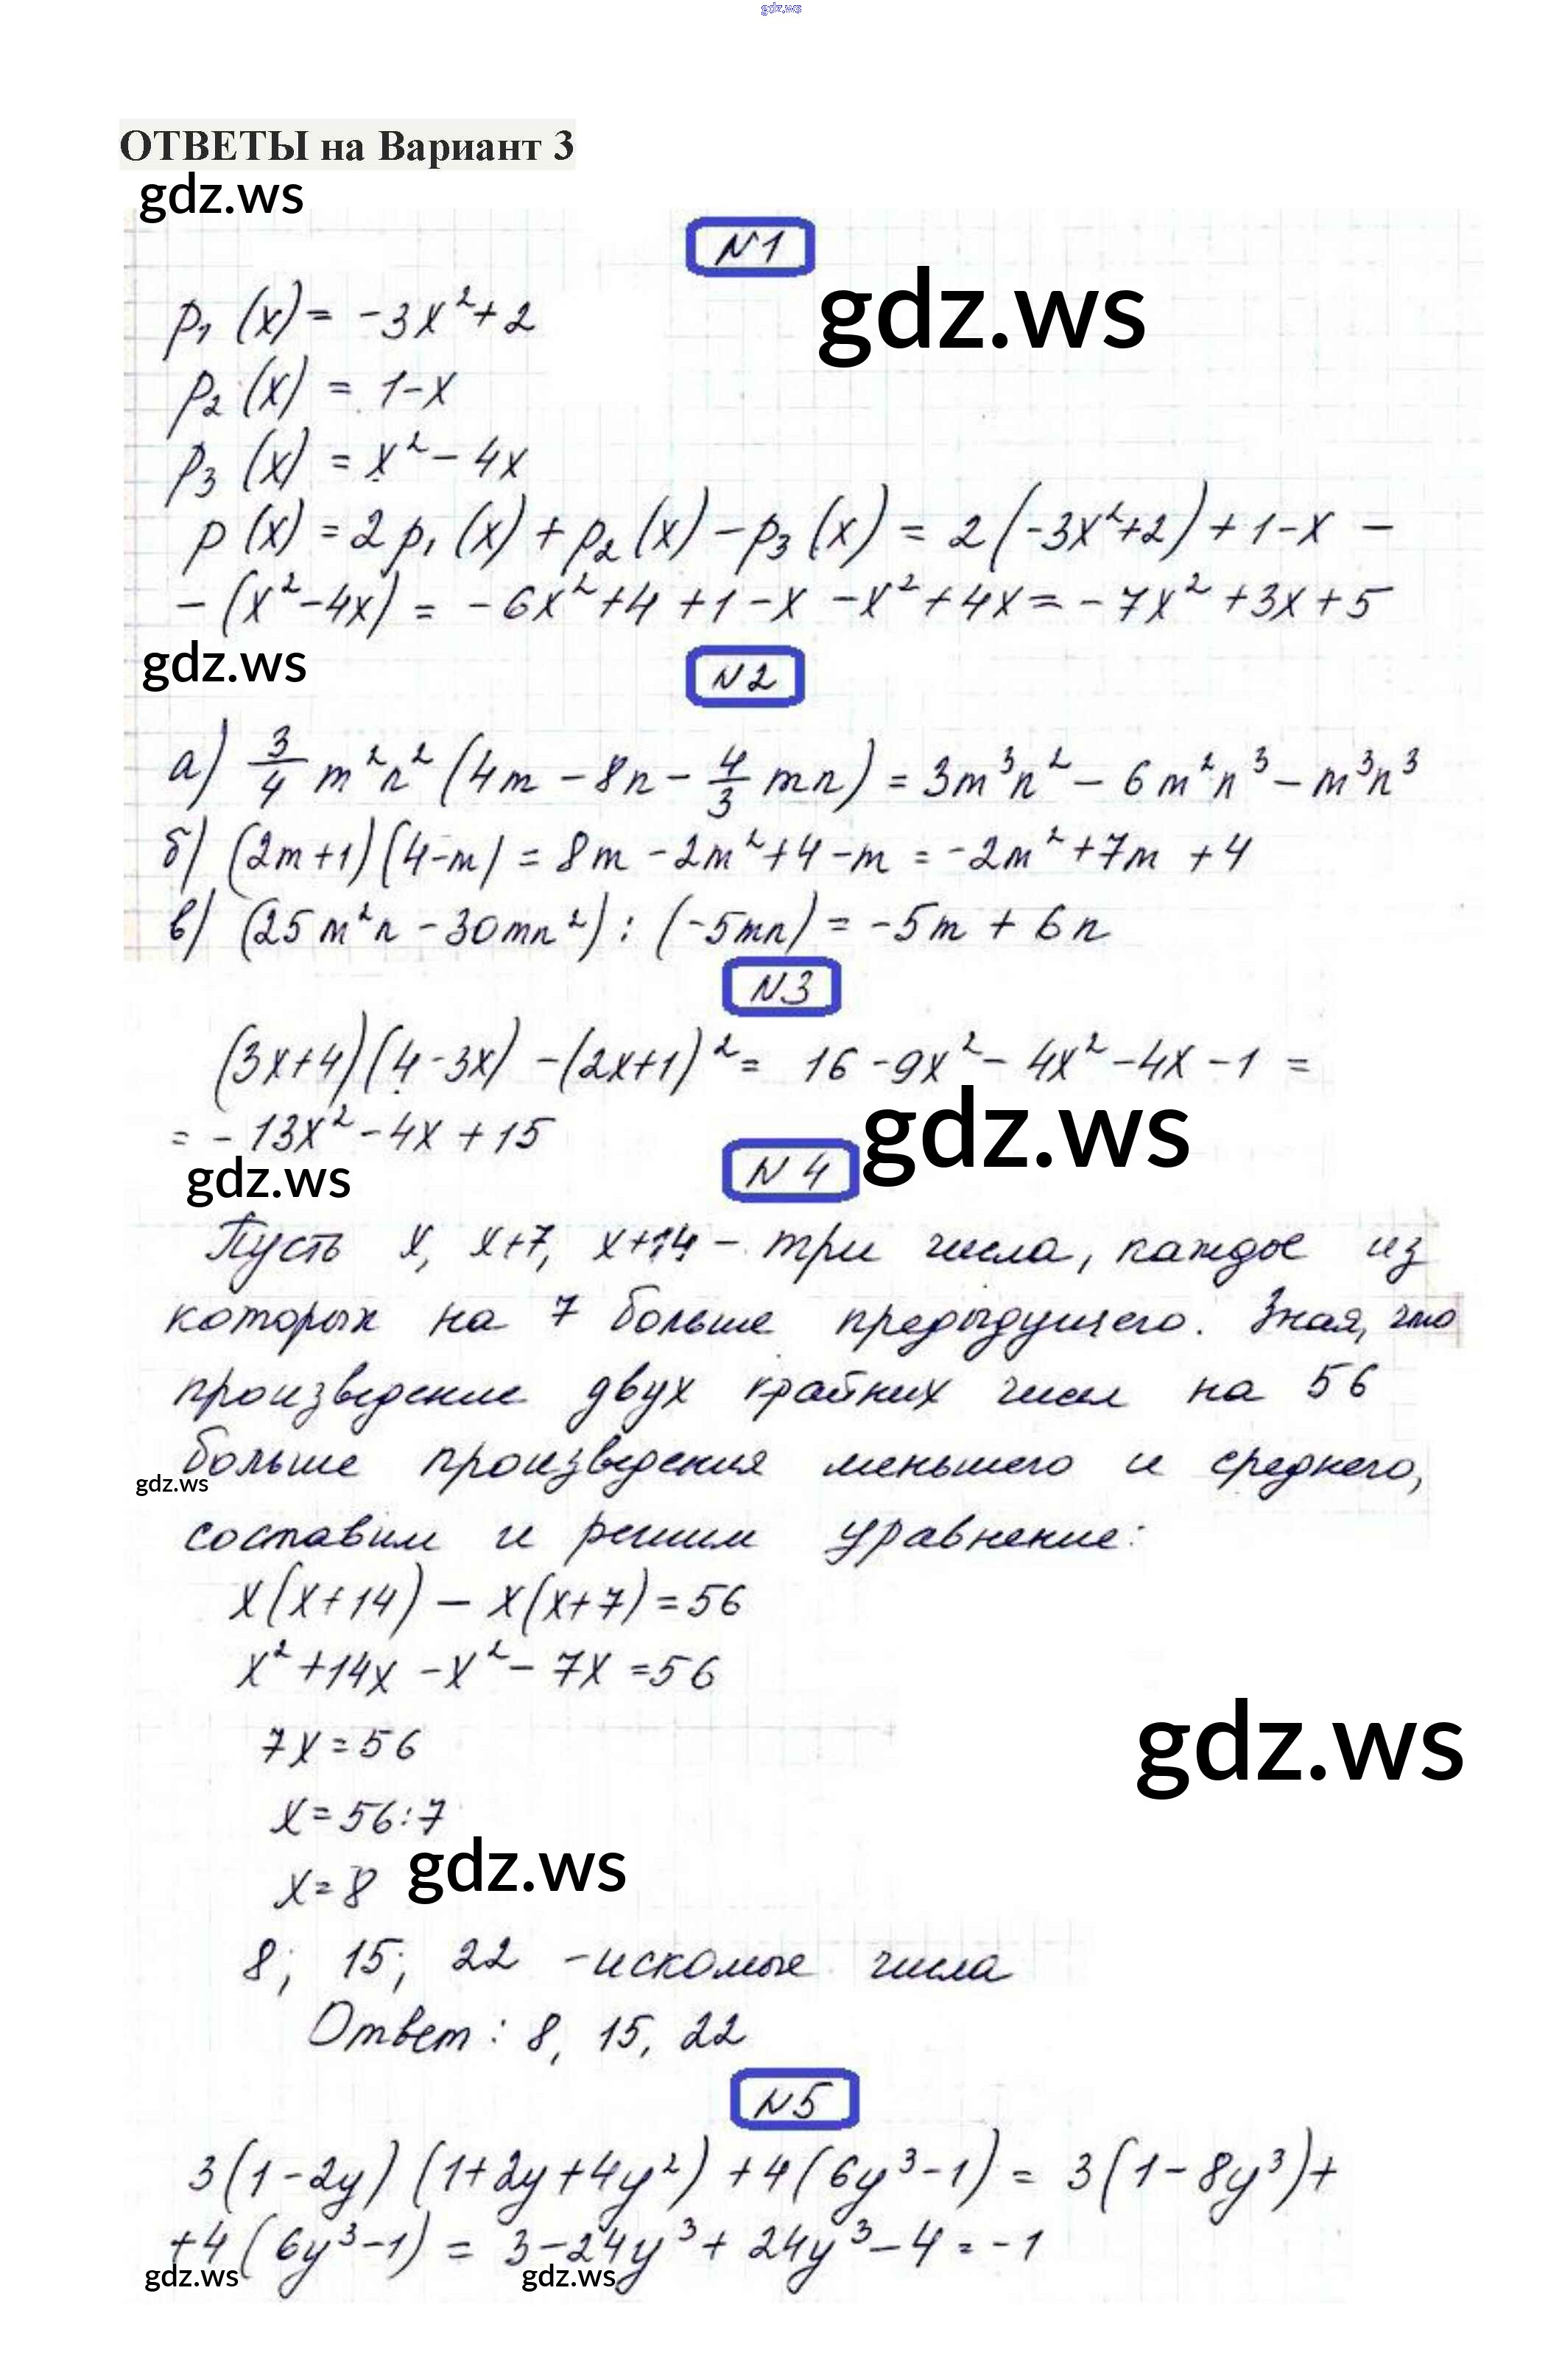 gdz.ws
ОТВЕТЫ на Вариант 3
gdz.ws
N1
p₁(x) = -3x²+2
gdz.ws
p₂(x) = 1-x
p₃(x) = x²-4x
p(x) = 2p₁(x)+p₂(x)-p₃(x) = 2(-3x²+2)+1-x -
-(x²-4x) = -6x²+4+1-x-x²+4x = -7x²+3x+5
gdz.ws
N2
а) 3/4 m²n²(4m-8n-4/3 mn) = 3m³n²-6m²n³-m³n³
б) (2m+1)(4-m) = 8m-2m²+4-m = -2m²+7m+4
в) (25m²n-30mn²):(-5mn) = -5m+6n
N3
(3x+4)(4-3x)-(2x+1)² = 16-9x²-4x²-4x-1 =
= -13x²-4x+15
gdz.ws
gdz.ws
N4
Пусть x, x+7, x+14 - три числа, каждое из
которых на 7 больше предыдущего. Зная, что
произведение двух крайних чисел на 56
больше произведения меньшего и среднего,
gdz.ws
составим и решим уравнение:
x(x+14) - x(x+7) = 56
x²+14x-x²-7x = 56
7x = 56
gdz.ws
x = 56:7
x = 8
gdz.ws
8; 15; 22 - искомые числа
Ответ: 8, 15, 22
N5
3(1-2y)(1+2y+4y²)+4(6y³-1) = 3(1-8y³)+
+4(6y³-1) = 3-24y³+24y³-4 = -1
gdz.ws
gdz.ws